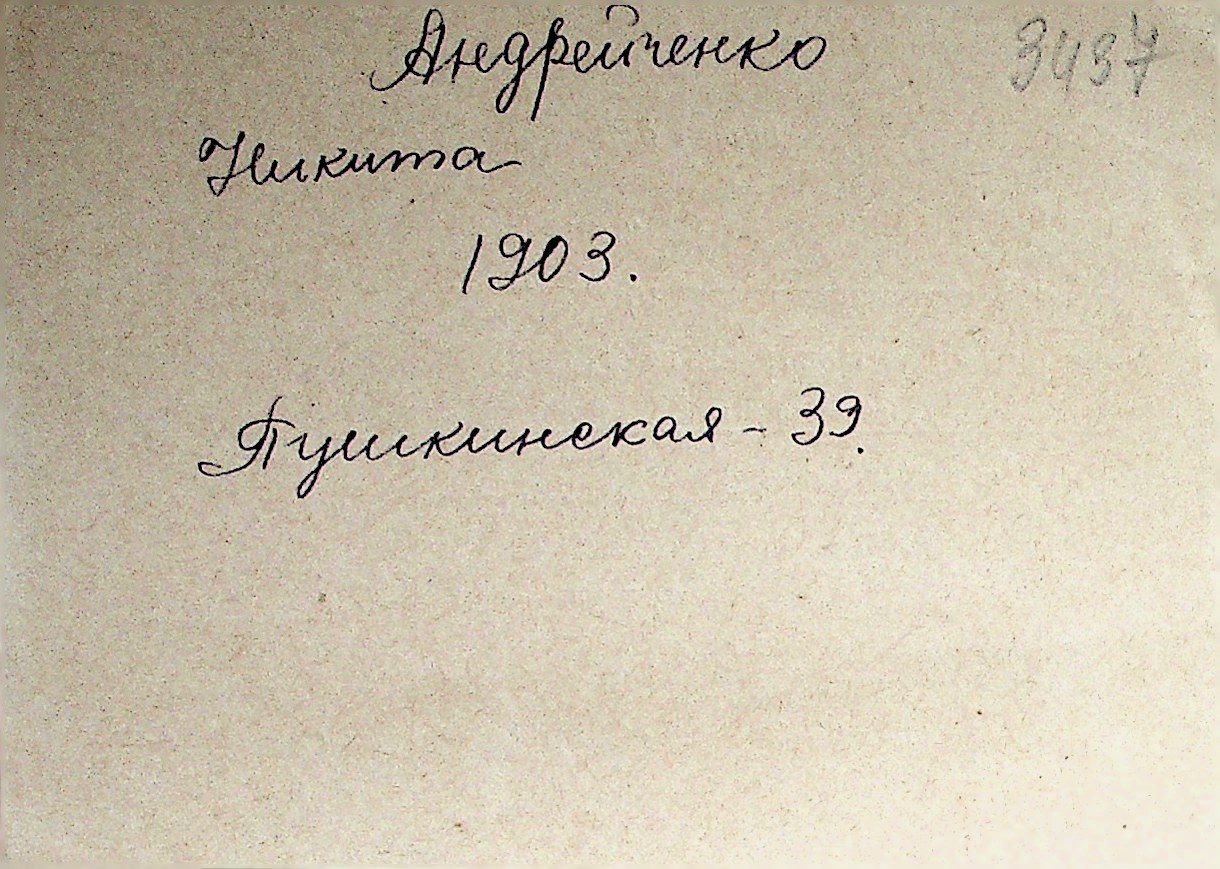 Андрейченко 3437
Никита
1903.
Пушкинская - 39.